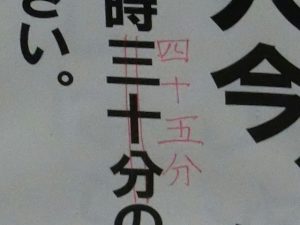 今
時三十分の
四十五分
さい。